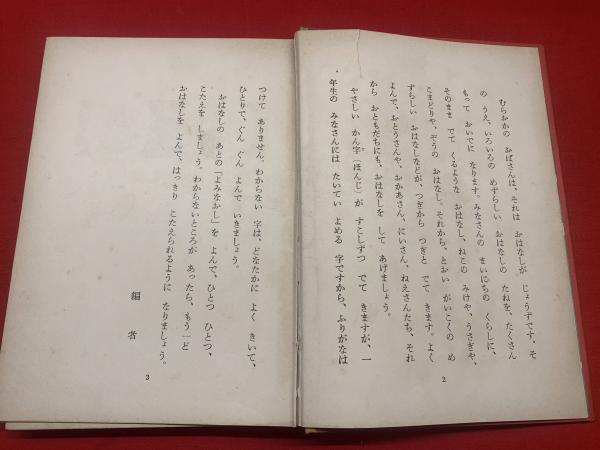 むらおかの おばさんは、それは おはなしが じょうずです。そ
の うえ、いろいろの めずらしい おはなしの たねを、たくさん
もって おいでに なります。みなさんの まいにちの くらしに、
そのまま でて くるような おはなし、ねこの みけや、うさぎや、
こまどりや、ぞうの おはなし。それから、とおい がいこくの め
ずらしい おはなしなどが、つぎから つぎと でて きます。よく
よんで、おとうさんや、おかあさん、にいさん、ねえさんたち、それ
から おともだちにも、おはなしを して あげましょう。
やさしい かん字（ほんじ）が すこしずつ でて きますが、一
年生の みなさんには たいてい よめる 字ですから、ふりがなは
2
つけて ありません。わからない 字は、どなたかに よく きいて、
ひとりで、ぐん ぐん よんで いきましょう。
おはなしの あとの「よみなおし」を よんで、ひとつ ひとつ、
こたえを しましょう。わからないところが あったら、もう一ど
おはなしを よんで、はっきり こたえられるように なりましょう。
編者
3